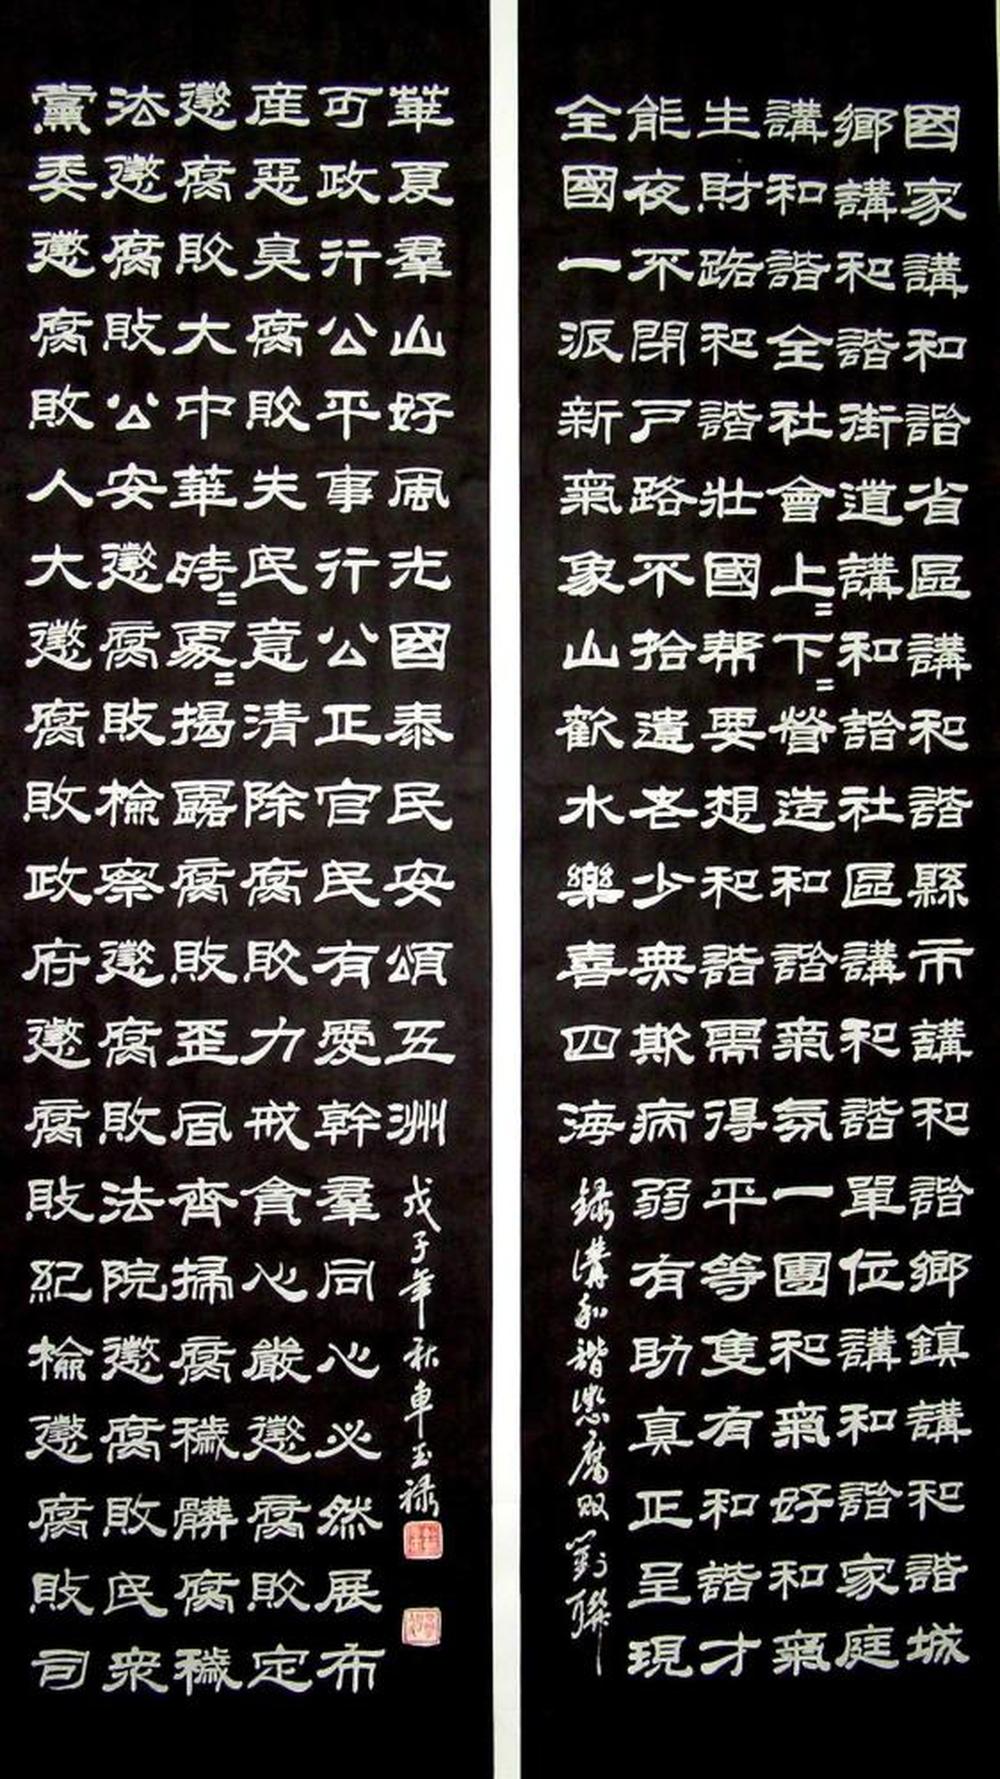 國家講和諧省區講和諧縣市講和諧鄉鎮講和諧城
鄉講和諧街道講和諧社區講和諧單位講和諧家庭
講和諧全社會上=下=營造和諧氣氛一團和氣好和氣
生財路和諧壯國帮要想和諧需得平等隻有和諧才
能夜不閉戶路不拾遺老少無欺病弱有助真正呈現
全國一派新氣象山歡水樂喜四海
錄講和諧懲腐敗對聯
黨委懲腐敗人大懲腐敗政府懲腐敗紀檢懲腐敗司
法懲腐敗公安懲腐敗檢察懲腐敗法院懲腐敗民眾
懲腐敗大中華時=處=揭露腐敗歪風齊掃腐穢髒腐穢
産惡臭腐敗失民意清除腐敗力戒貪心嚴懲腐敗定
可政行公平事行公正官民有愛幹羣同心必然展布
華夏羣山好風光國泰民安頌五洲
戊子年秋車玉祿